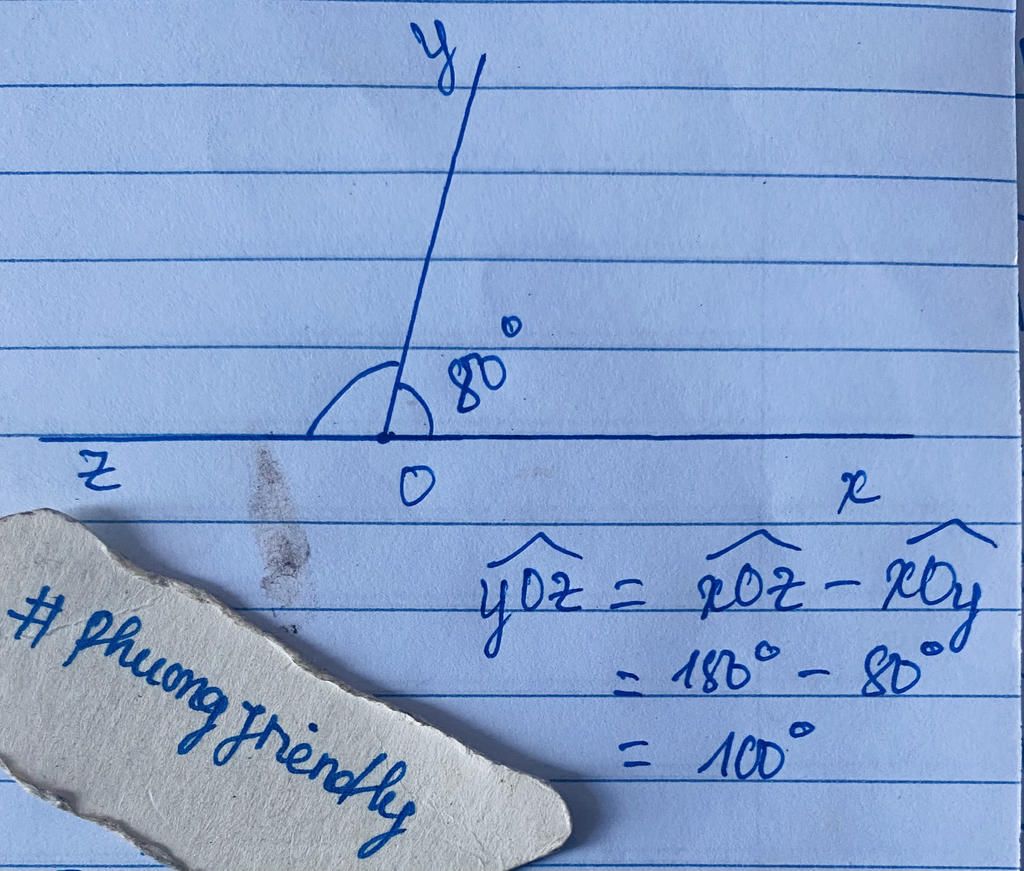 y
80°
z O x
yOz = xOz - xOy
= 180° - 80°
= 100°
# phuongfriendly